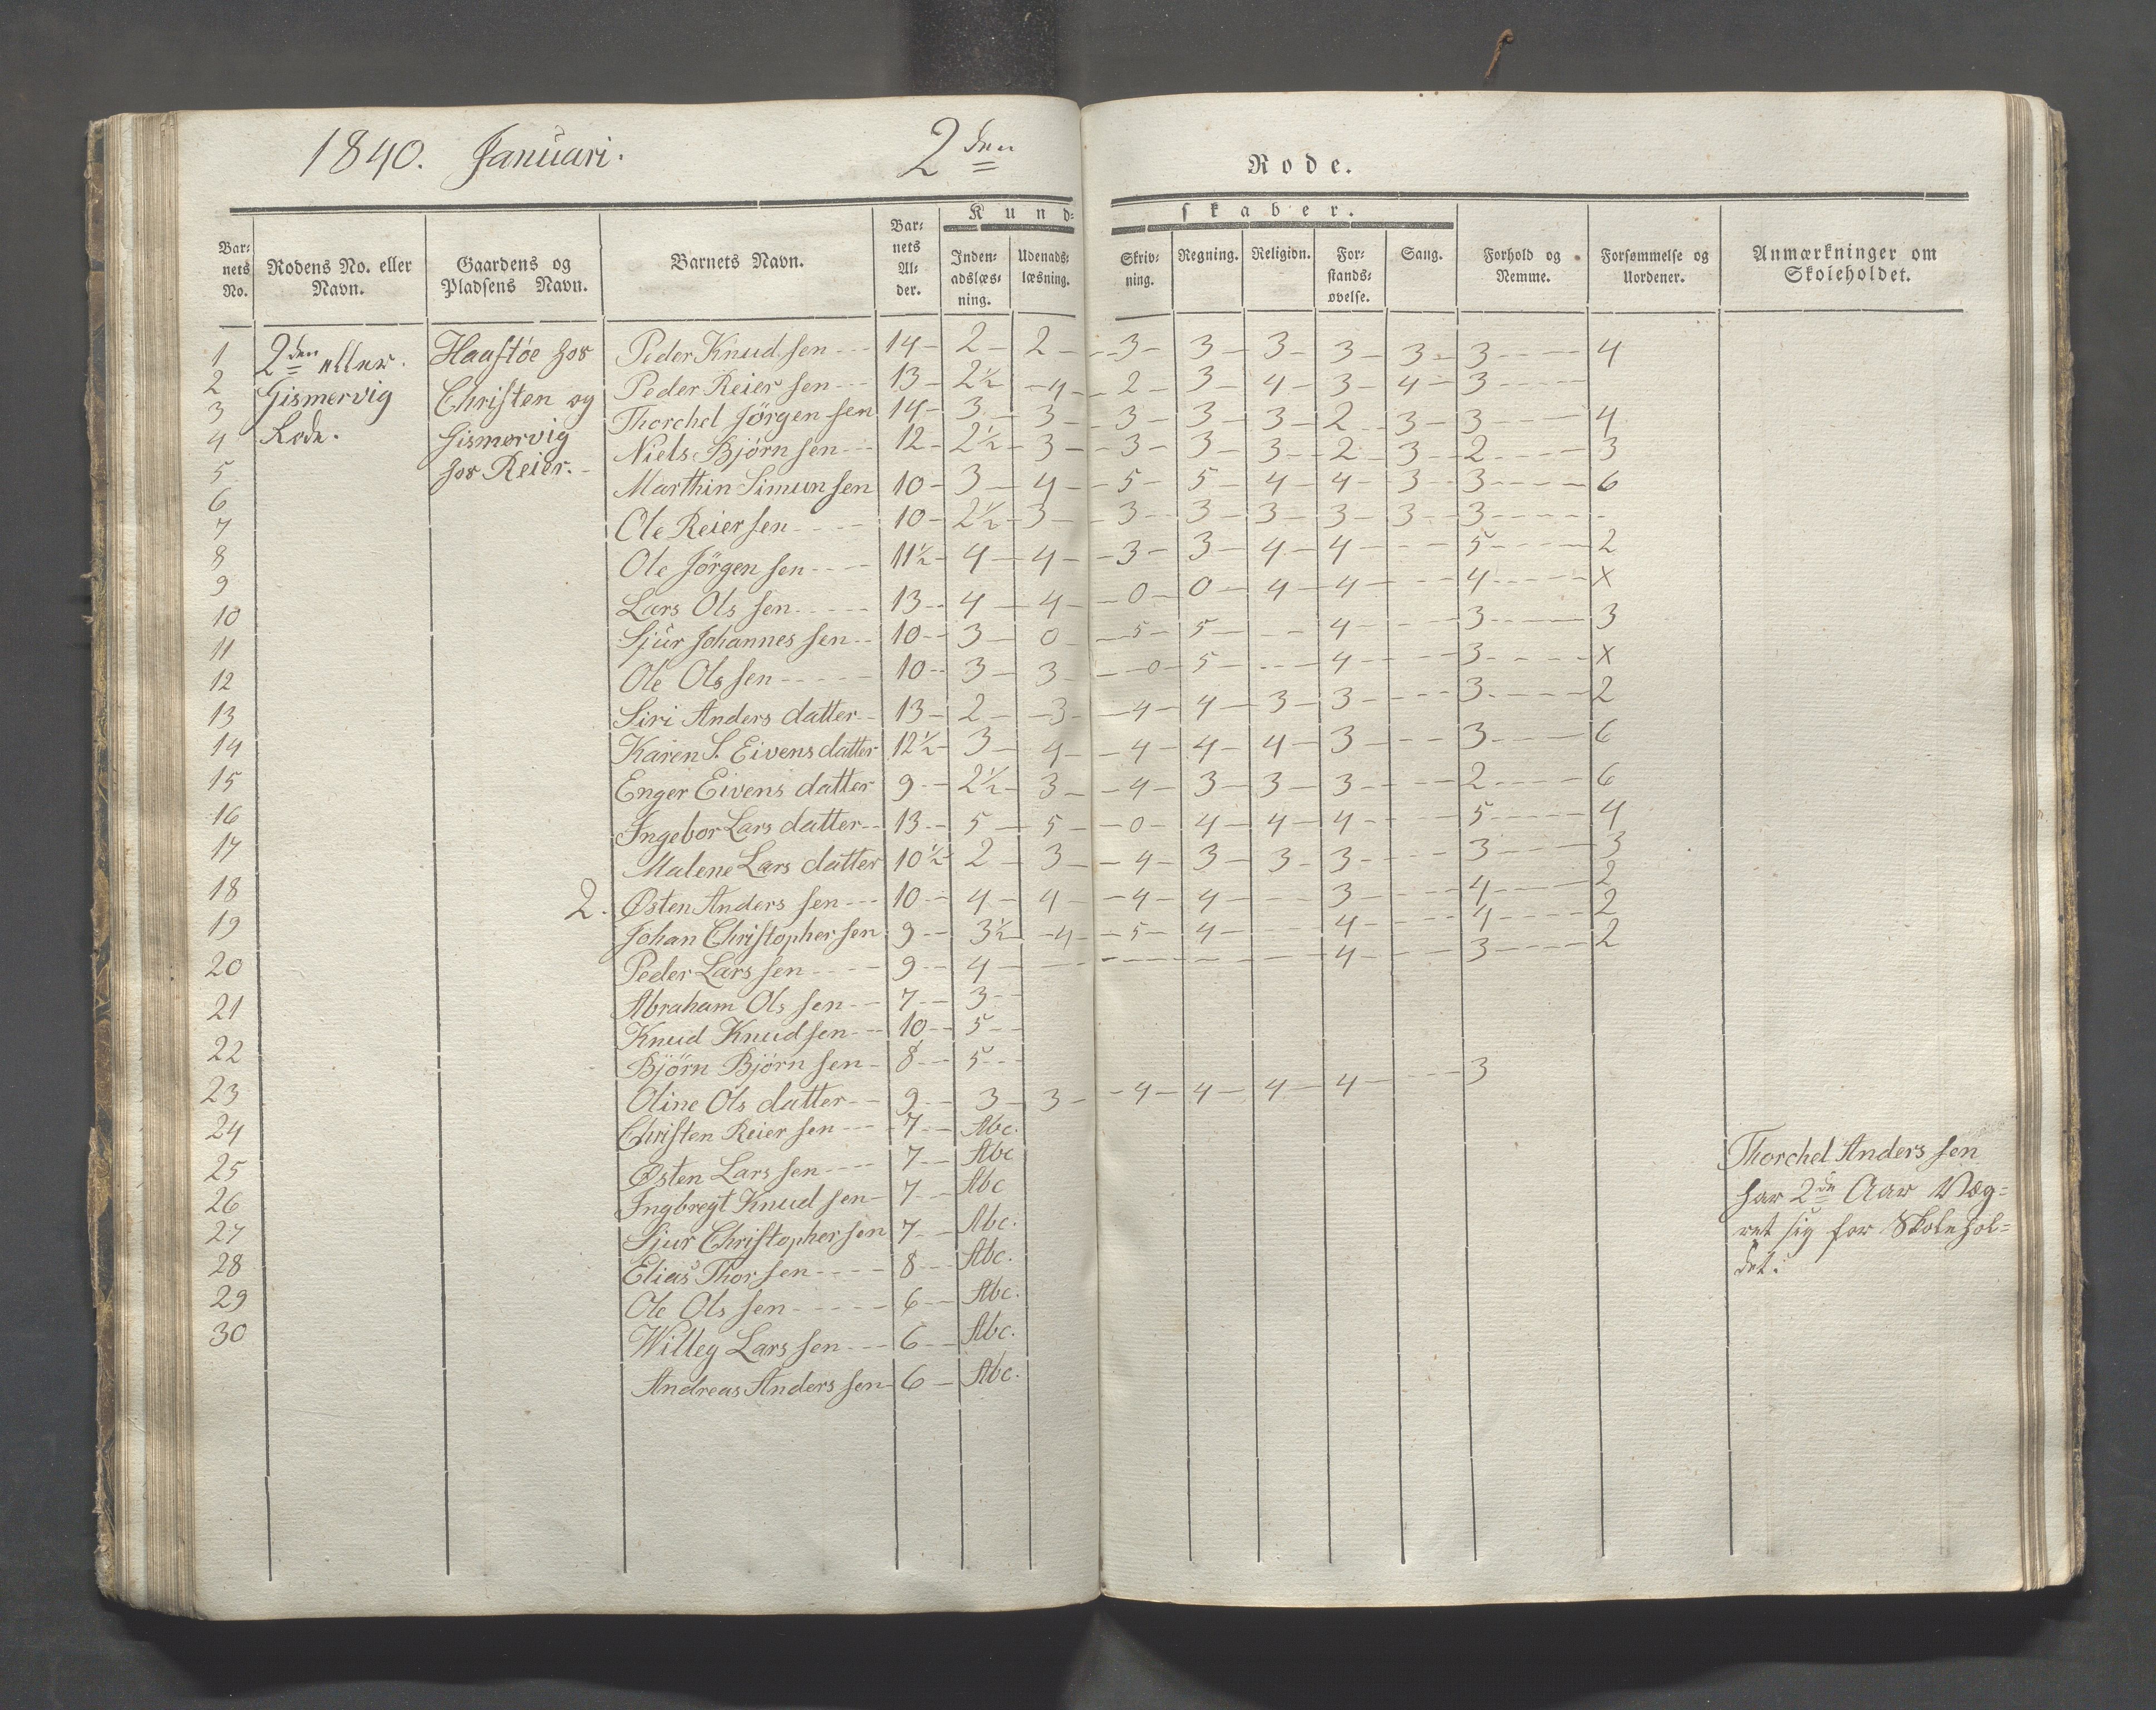 1840. Januari. 2den Rode.
Kund- skaber.
Bar- nets No. | Rodens No. eller Navn. | Gaardens og Pladsens Navn. | Barnets Navn. | Bar- nets Al- der. | Inden- adslæs- ning. | Udenads- læsning. | Skriv- ning. | Regning. | Religion. | For- stands- øvelse. | Sang. | Forhold og Nemme. | Forsømmelse og Uordener. | Anmærkninger om Skoleholdet.
1 2den eller Haastöe hos Peder Knudsen 14 2 2 3 3 3 3 3 3 4
2 Gismervig Christen og Peder Reiersen 13 2½ 4 2 3 4 3 4 3
3 Rode. Gismervig Thorchel Jörgensen 14 3 3 3 3 3 2 3 3 4
4 hos Reier. Niels Björnsen 12 2½ 3 3 3 3 2 3 2 3
5 Marthin Simunsen 10 3 4 5 5 4 4 3 3 6
6 Ole Reiersen 10 2½ 3 3 3 3 3 3 3
7 Ole Jörgensen 11½ 4 4 3 3 4 4 5 2
8 Lars Olssen 13 4 4 0 0 4 4 4 X
9 Sjur Johannessen 10 3 0 5 5 4 3 3
10 Ole Olssen 10 3 3 0 5 4 3 X
11 Siri Andersdatter 13 2 3 4 4 3 3 3 2
12 Karen S. Eivensdatter 12½ 3 4 4 4 4 3 3 6
13 Enger Eivensdatter 9 2½ 3 4 3 3 3 2 6
14 Ingebor Larsdatter 13 5 5 0 4 4 4 5 4
15 Malene Larsdatter 10½ 2 3 4 3 3 3 3 3
16 2. Østen Anderssen 10 4 4 4 4 3 4 2
17 Johan Christophersen 9 3½ 4 5 4 4 4 2
18 Peder Larssen 9 4 4 3 2
19 Abraham Olssen 7 3
20 Knud Knudsen 10 5
21 Björn Björnsen 8 5 3
22 Oline Olsdatter 9 3 3 4 4 4 4
23 Christen Reiersen 7 Abc.
24 Østen Larssen 7 Abc
25 Ingbregt Knudsen 7 Abc
26 Sjur Christophersen 7 Abc.
27 Elias Thorsen 8 Abc.
28 Ole Olssen 6 Abc.
29 Willeg Larssen 6 Abc.
30 Andreas Anderssen 6 Abc.
Thorchel Anderssen
har 2de Aar Væg-
ret sig for Skolehol-
det.